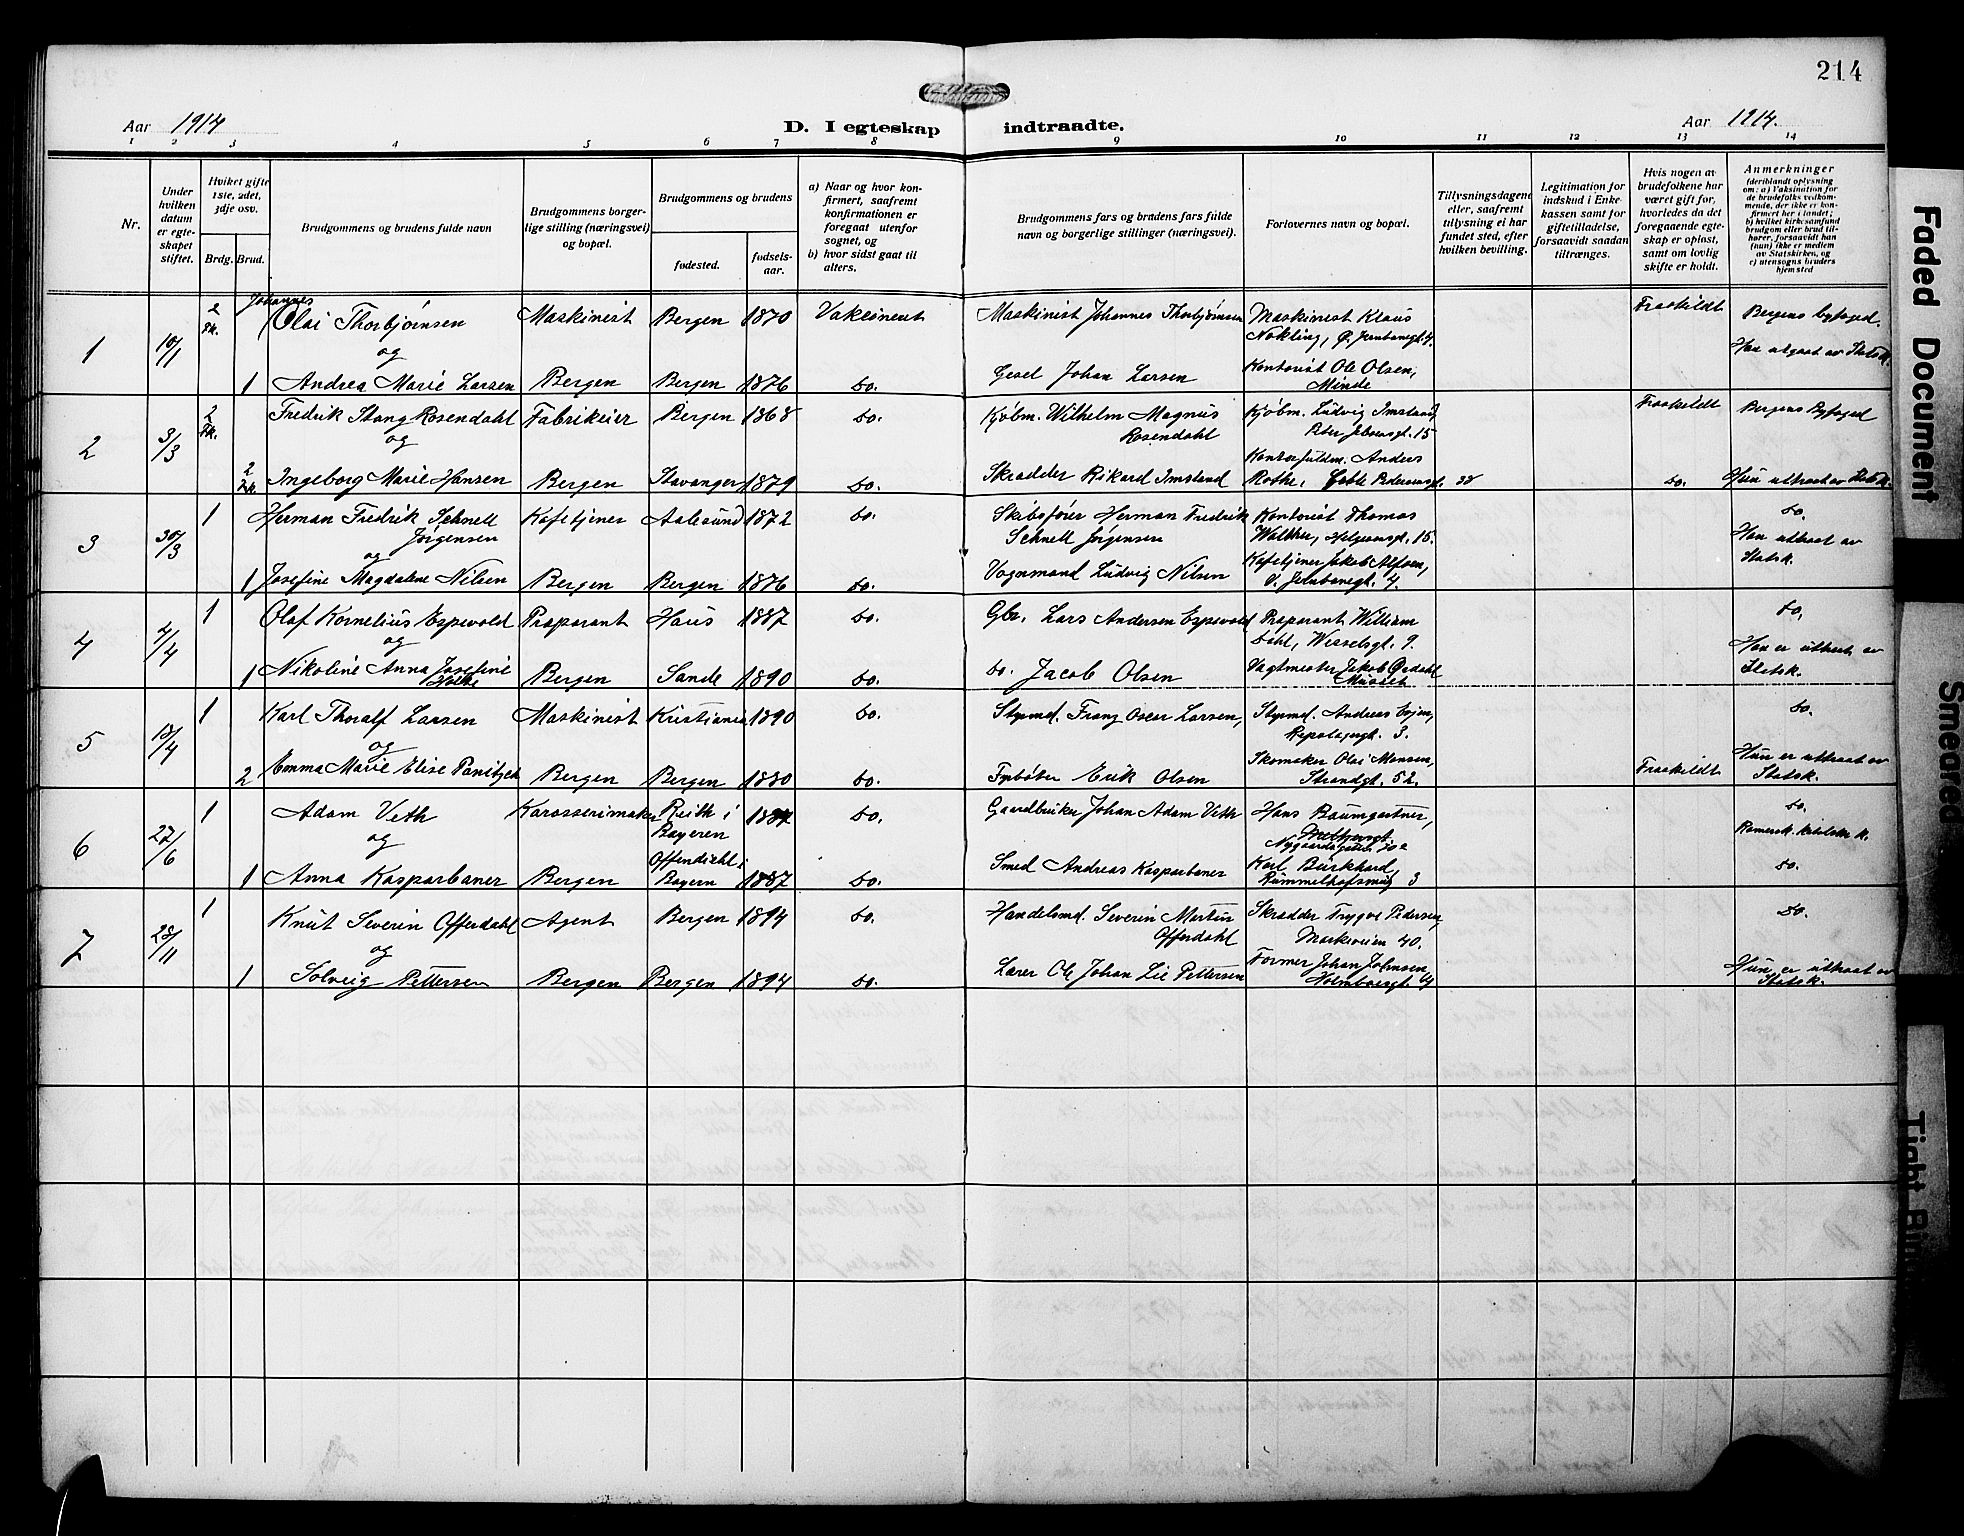 214
Aar 1914
D. I egteskap indtraadte.
Aar 1914.
1 2 3 4 5 6 7 8 9 10 11 12 13 14
Nr.
Under hvilken datum er egteskapet stiftet.
Hviket gifte 1ste, 2det, 3dje osv.
Brdg. Brud.
Brudgommens og brudens fulde navn
Brudgommens borgerlige stilling (næringsvei) og bopæl.
Brudgommens og brudens
fødested.
fødselsaar.
a) Naar og hvor konfirmert, saafremt konfirmationen er foregaat utenfor sognet, og
b) hvor sidst gaat til alters.
Brudgommens fars og brudens fars fulde navn og borgerlige stillinger (næringsvei).
Forlovernes navn og bopæl.
Tillysningsdagene eller, saafremt tillysning ei har fundet sted, efter hvilken bevilling.
Legitimation for indskud i Enkekassen samt for giftetilladelse, forsaavidt saadan tiltrænges.
Hvis nogen av brudefolkene har været gift for, hvorledes da det foregaaende egteskap er opløst, samt om lovlig skifte er holdt.
Anmerkninger
(deriblandt oplysning om: a) Vaksination for de brudefolks vedkommende, der ikke er konfirmert her i landet; b) hvilket kirkesamfund brudgom eller brud tilhører, forsaavidt han (hun) ikke er medlem av Statskirken, og c) utensogns bruders hjemsted
1 10/1 2 fk. Johannes
Olai Thorbjørnsen Maskinist Bergen 1870 Vakcineret Maskinist Johannes Thorbjørnsen Maskinist Klaus Nokling, Ø. Jernbanegt. 4. Fraskildt Bergens byfoged.
og
Han utgaat av Statsk.
1 Andrea Marie Larsen Bergen Bergen 1876 do. Gesel Johan Larsen Kontorist Ole Olsen, Minde
2 3/3 2 fk. Fredrik Stang Rosendahl Fabrikeier Bergen 1868 do. Kjøbm. Wilhelm Magnus Rosendahl Kjøbm. Ludvig Imsland, Peter Jebsensgt. 15 Fraskildt Bergens Byfoged
og
2 fk. Ingeborg Marie Hansen Bergen Stavanger 1879 do. Skrædder Rikard Imsland Kontorfuldm. Anders Rothe, Gable Pedersensgt. 38 do. Hun uttraat av Statsk.
3 30/3 1 Herman Fredrik Schnell Jørgensen Kafetjener Aalesund 1872 do. Skibsfører Herman Fredrik Schnell Jørgensen Kontorist Thomas Walther, Helgesensgt. 15. do.
og
Han uttraat av Statsk.
1 Josefine Magdalene Nilsen Bergen Bergen 1876 do. Vognmand Ludvig Nilsen Kafetjener Jakob Alfsen, V. Jernbanegt. 4.
4 4/4 1 Olaf Kornelius Espevold Præparant Haus 1887 do. Gbr. Lars Andersen Espevold Præparant William Dahl, Wesselsgt. 9. do.
og
Han er uttraat av Statsk.
1 Nikoline Anna Josefine Bergen Sande 1890 do. do. Jacob Olsen Vagtmester Jakob Øxdahl Museet
5 13/4 1 Karl Thoralf Larsen Maskinist Kristiania 1890 do. Styrmd. Franz Oscar Larsen, Styrmd. Andreas Evjen, Repslagergt. 3. do.
og
Hun er uttraat av Statsk.
2 Emma Marie Elise Panitzch Bergen Bergen 1880 do. Fyrbøter Erik Olsen Skomaker Olai Monsen, Strandgt. 52. Fraskildt
6 27/6 1 Adam Veth Karosserimaker Reith i Bayeren 1887 do. Gaardbruker Johan Adam Veth Hans Baumgartner, Nygaardsgaten 30 a do.
Romersk. katolske K.
og
1 Anna Kasparbaner Bergen Offendichl i Bayern 1887 do. Smed Andreas Kasparbaner Karl Burkhard, Rummelhofsmug 3 do.
7 28/11 1 Knut Severin Offerdahl Agent Bergen 1894 do. Handelsmd. Severin Martin Offerdahl Skrædder Trygve Pedersen, Markeveien 40. do.
og
1 Solveig Pettersen Bergen Bergen 1894 do. Lærer Ole Johan Lie Pettersen Former Johan Johnsen, Holmboesgt. 4 Hun er uttraat av Statsk.
Faded Document
Smeared
Tight Bin